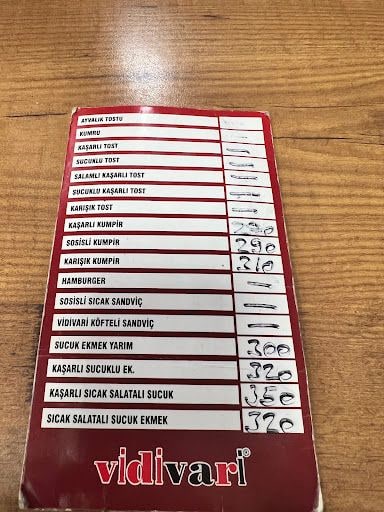 AYVALIK TOSTU
KUMRU —
KAŞARLI TOST —
SUCUKLU TOST —
SALAMLI KAŞARLI TOST —
SUCUKLU KAŞARLI TOST —
KARIŞIK TOST —
KAŞARLI KUMPİR
SOSİSLİ KUMPİR 290
KARIŞIK KUMPİR 310
HAMBURGER —
SOSİSLİ SICAK SANDVİÇ —
VİDİVARİ KÖFTELİ SANDVİÇ —
SUCUK EKMEK YARIM 300
KAŞARLI SUCUKLU EK. 320
KAŞARLI SICAK SALATALI SUCUK 350
SICAK SALATALI SUCUK EKMEK 320
vidivari